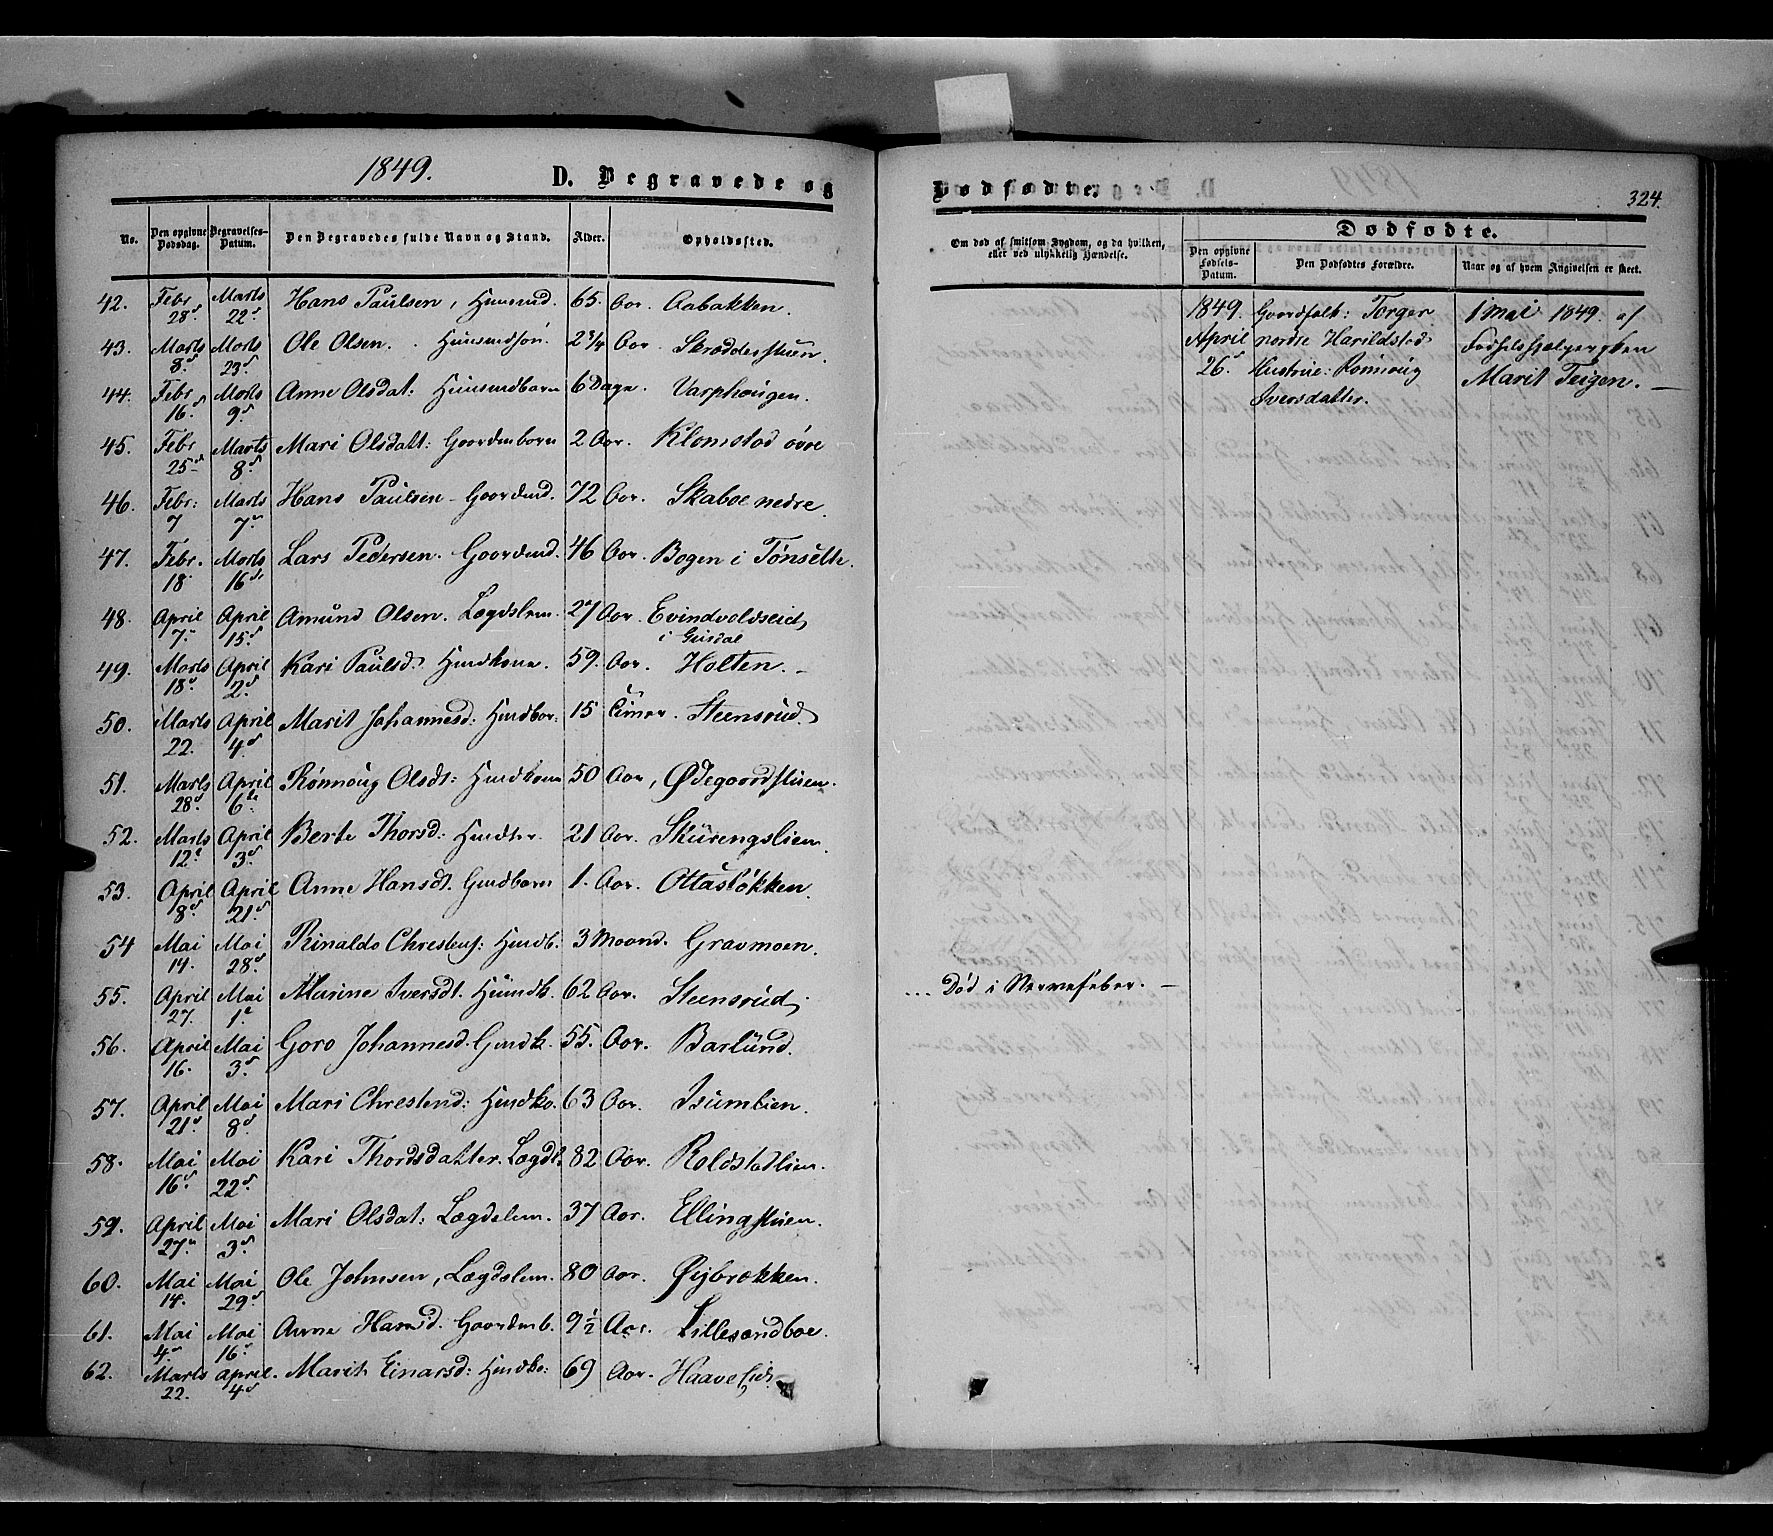 1849.
D. Begravede og
No.
Den opgivne Dødsdag.
Begravelses-Datum.
Den Begravedes fulde Navn og Stand.
Alder.
Opholdssted.
42. Febr 28d Marts 22d Hans Paulsen, Huusmd. 65. Aar. Aabakken.
43. Marts 8d Marts 23d Ole Olsen. Huusmdsøn. 2¾ Aar.
44. Febr 16d Marts 9d Anne Olsdat: Huusmdbarn 6 Dage. Varphaugen.
45. Febr 25d Marts 8d Mari Olsdatt: Gaardmbarn 2 Aar. Klomstad øvre
46. Febr: 7 Marts 7d Hans Paulsen - Gaardmd. 72 Aar. Skaboe nedre.
47. Febr. 18 Marts 16d Lars Pedersen. Gaardmd. 46 Aar. Bogen i Tønseth.
48. April 7d April 15d Amund Olsen. Lægdslem. 27 Aar.
i Gusdal
49. Marts 18d April 2d Kari Paulsd. Husmdkone. 59. Aar. Holten. -
50. Marts 22. April 4d Marit Johannesd: Husmdbar: 15 Timer. Steensrud.
51. Marts 28d April 6te Rønnoug Olsdt: Husmdkone 50 Aar, Ødegaardstuen.
52. Marts 12t April 3d Berte Thorsd: Husmdter. 21 Aar. Skurengslien.
53. April 8d April 21d Anne Hansdt. Gmdbarn 1. Aar. Ottasløkken.
54 Mai 14. Mai 28d Rinaldo Chrestens: Husmdb: 3 Maand. Gravmoen.
55. April 27. Mai 1t Marine Iversdt. Huusmdk. 62 Aar. Steensrud.
56. April 16. Mai 3d Goro Johannesd. Gmdk. 55. Aar. Barlund.
57. April 21d Mai 8d Mari Chrestend: Husmdko. 63 Aar. Isumlien.
58. Mai 16d Mai 22d Kari Thordsdatter. Lægdl. 82 Aar. Roldstadlien.
59. April 27d Mai 3d Mari Olsdat: Lægdslem. 37 Aar. Ellingstuen.
60. Mai 14. Mai 29d Ole Johnsen, Lægdslem. 80 Aar. Øybrækken.
61. Mai 4d Mai 16d Anne Hansd. Gaardmb. 9½ Aar. Lillesandboe.
62. Marts 22. April 4d Marit Einarsd: Husmdko: 69 Aar.
Dødfødte.
324.
Om død af smitsom Sygdom, og da hvilken, eller ved ulykkelig Hændelse.
Dødfødte.
Den opgivne Fødsels-Datum.
Den Dødfødtes Forældre.
Naar og af hvem Angivelsen er skeet.
1849. Gaardfolk: Torger 1 Mai 1849. af
April nordre Harildstad Fødselshjelpersken
26d Hustrue: Rønnoug Marit Teigen. -
Iversdatter.
... Død i Nervefeber. -